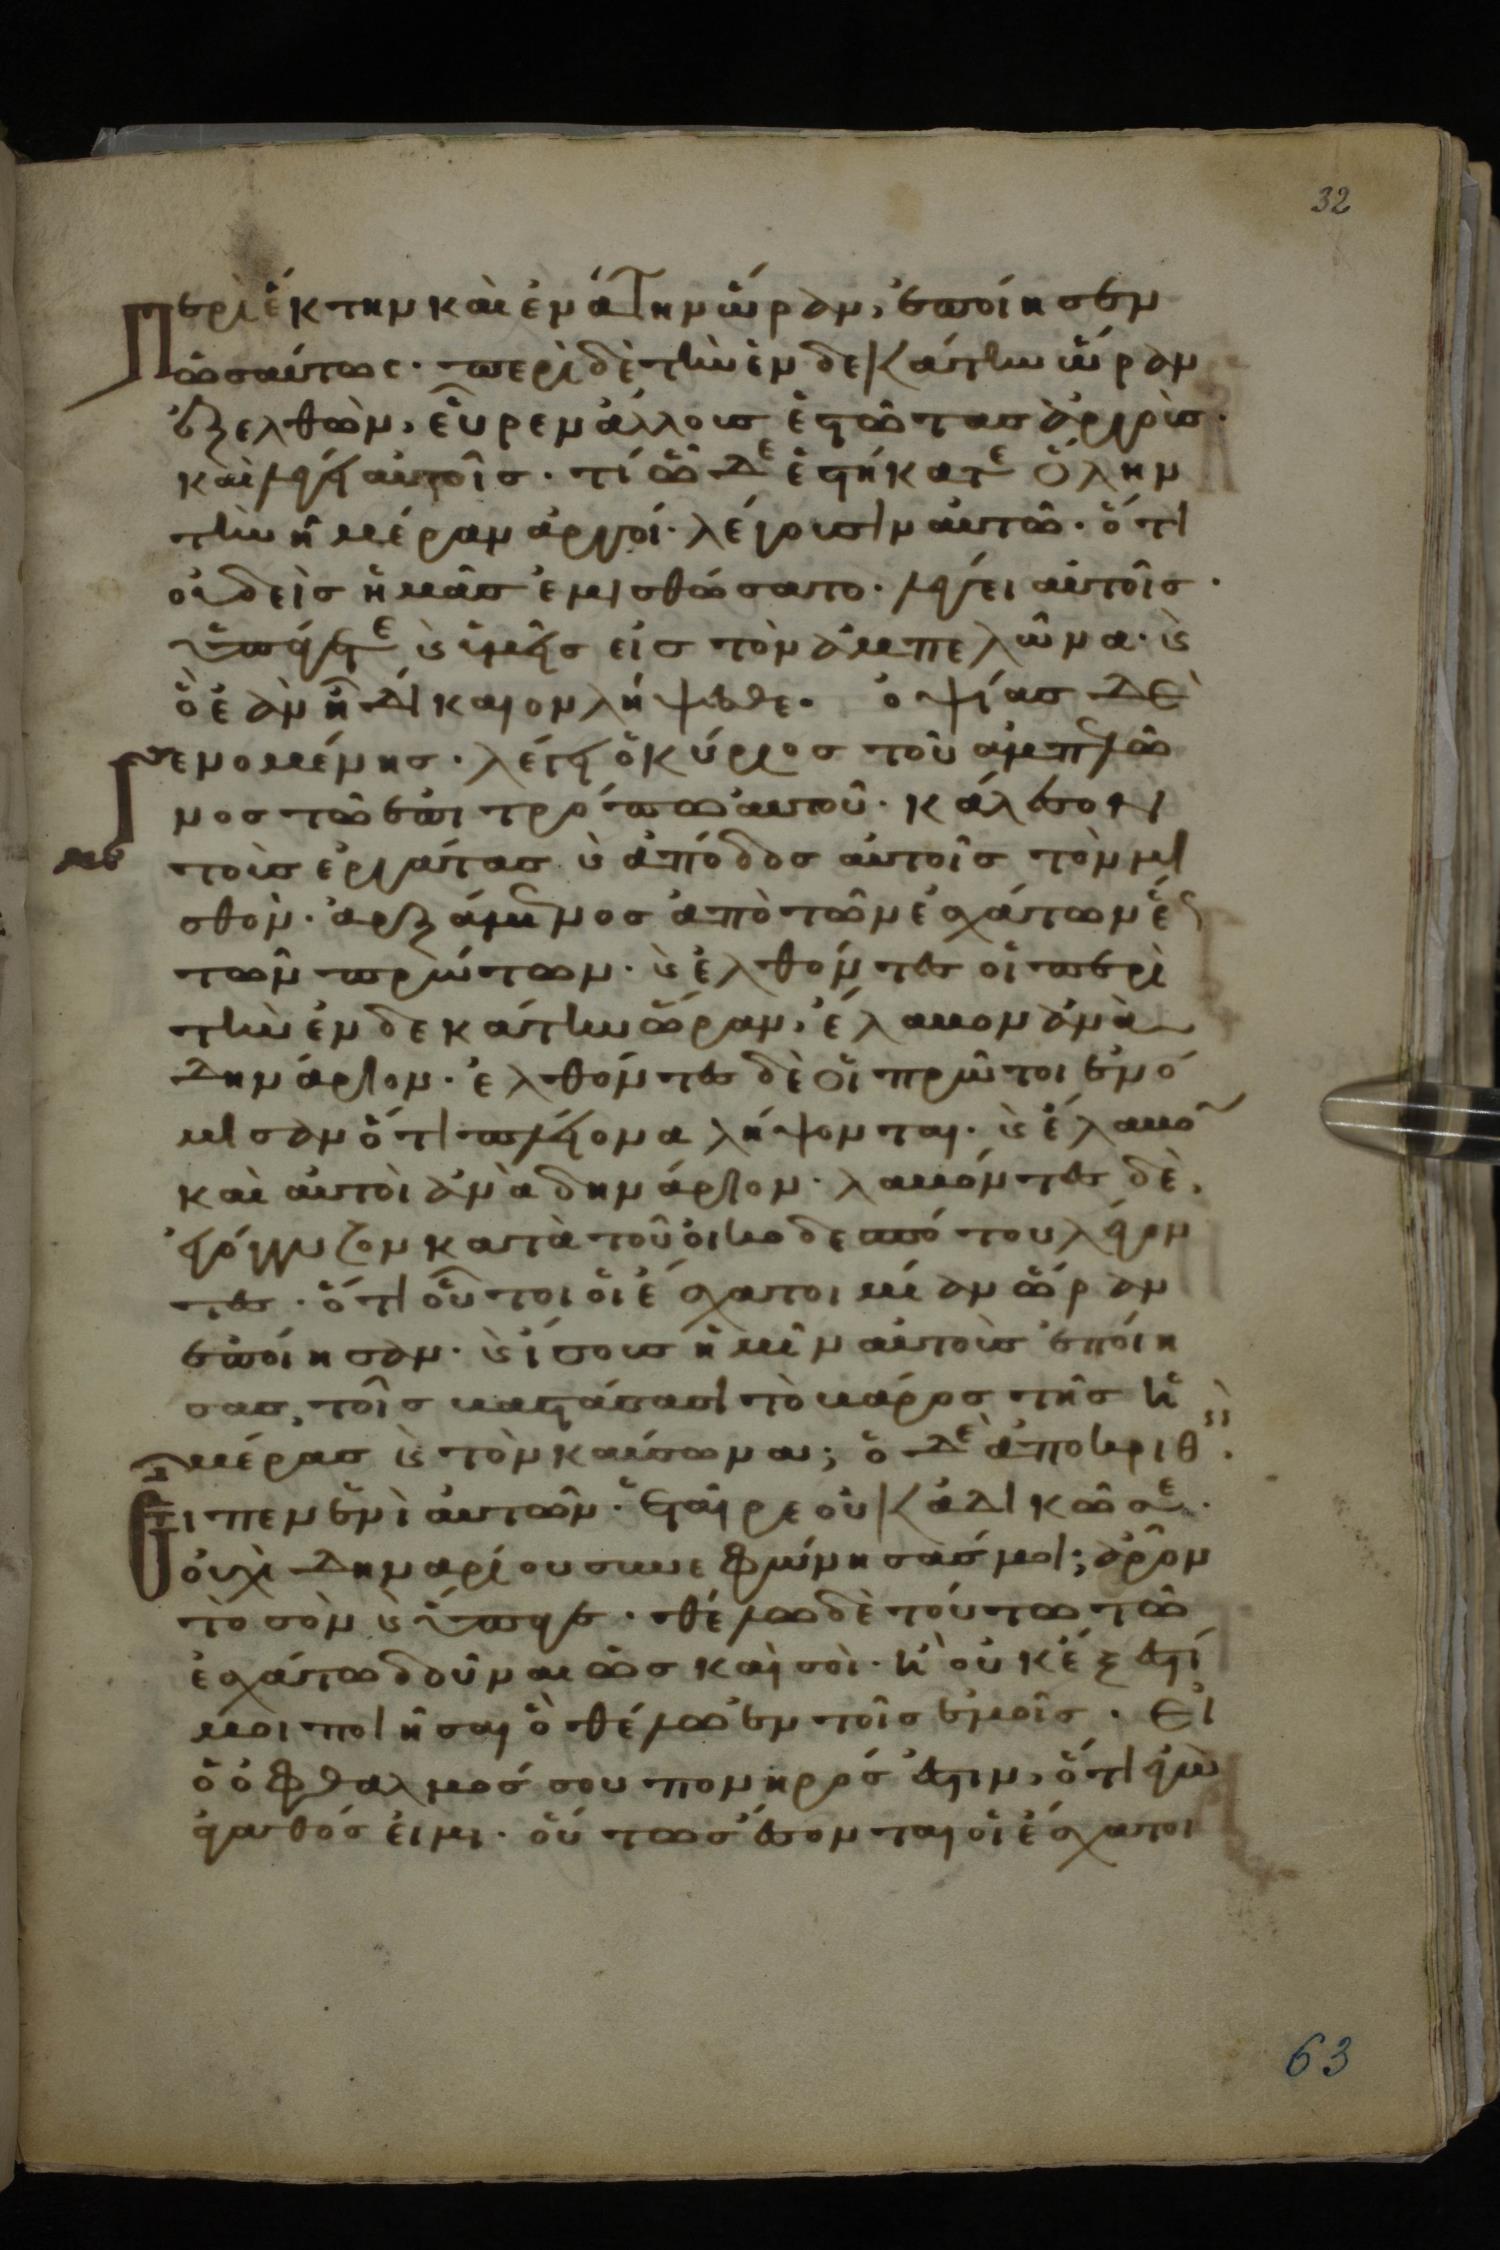 32
Περὶ ἕκτην καὶ ἐνάτην ὥραν, ἐποίησεν
ὡσαύτως· περὶ δὲ τὴν ἑνδεκάτην ὥραν
ἐξελθὼν, εὗρεν ἄλλους ἑστῶτας ἀργούς·
καὶ λέγει αὐτοῖς· τί ὧδε ἑστήκατε ὅλην
τὴν ἡμέραν ἀργοί· λέγουσιν αὐτῶ· ὅτι
οὐδεὶς ἡμᾶς ἐμισθώσατο· λέγει αὐτοῖς·
ὑπάγετε ϗ ὑμεῖς εἰς τὸν ἀμπελῶνα· ϗ
ὃ ἐὰν ἦ δίκαιον λήψεσθε· ὀψίας δὲ
γενομένης· λέγει ὁ κύριος τοῦ ἀμπελῶ
νος τῶ ἐπιτρόπω αὐτοῦ· κάλεσον
τοὺς ἐργάτας ϗ ἀπόδος αὐτοῖς τὸν μι
σθὸν· ἀρξάμενος ἀπὸ τῶν ἐσχάτων ἕως
τῶν πρώτων· ϗ ἐλθόντες οἱ περὶ
τὴν ἑνδεκάτην ὥραν, ἔλαβον ἀνὰ
δηνάριον· ἐλθόντες δὲ οἱ πρῶτοι ἐνό
μισαν ὅτι πλείονα λήψονται· ϗ ἔλαβον
καὶ αὐτοὶ ἀνὰ δηνάριον· λαβόντες δὲ,
ἐγόγγυζον κατὰ τοῦ οἰκοδεσπότου λέγον
τες· ὅτι οὗτοι οἱ ἔσχατοι μίαν ὥραν
ἐποίησαν· ϗ ἴσους ἡμῖν αὐτοὺς ἐποίη
σας, τοῖς βαστάσασι τὸ βάρος τῆς ἡ
μέρας ϗ τὸν καύσωνα; ὁ δὲ ἀποκριθεὶς
εἶπεν ἑνὶ αὐτῶν· ἑταῖρε οὐκ ἀδικῶ σε·
οὐχὶ δηναρίου συνεφώνησάς μοι; ἆρον
τὸ σὸν ϗ ὕπαγε· θέλω δὲ τούτω τῶ
ἐσχάτω δοῦναι ὡς καὶ σοὶ· ἢ οὐκ ἔξεστί
μοι ποιῆσαι ὃ θέλω ἐν τοῖς ἐμοῖς· Εἰ
ὁ ὀφθαλμός σου πονηρός ἐστιν, ὅτι ἐγὼ
ἀγαθός εἰμι· οὕτως ἔσονται οἱ ἔσχατοι
63